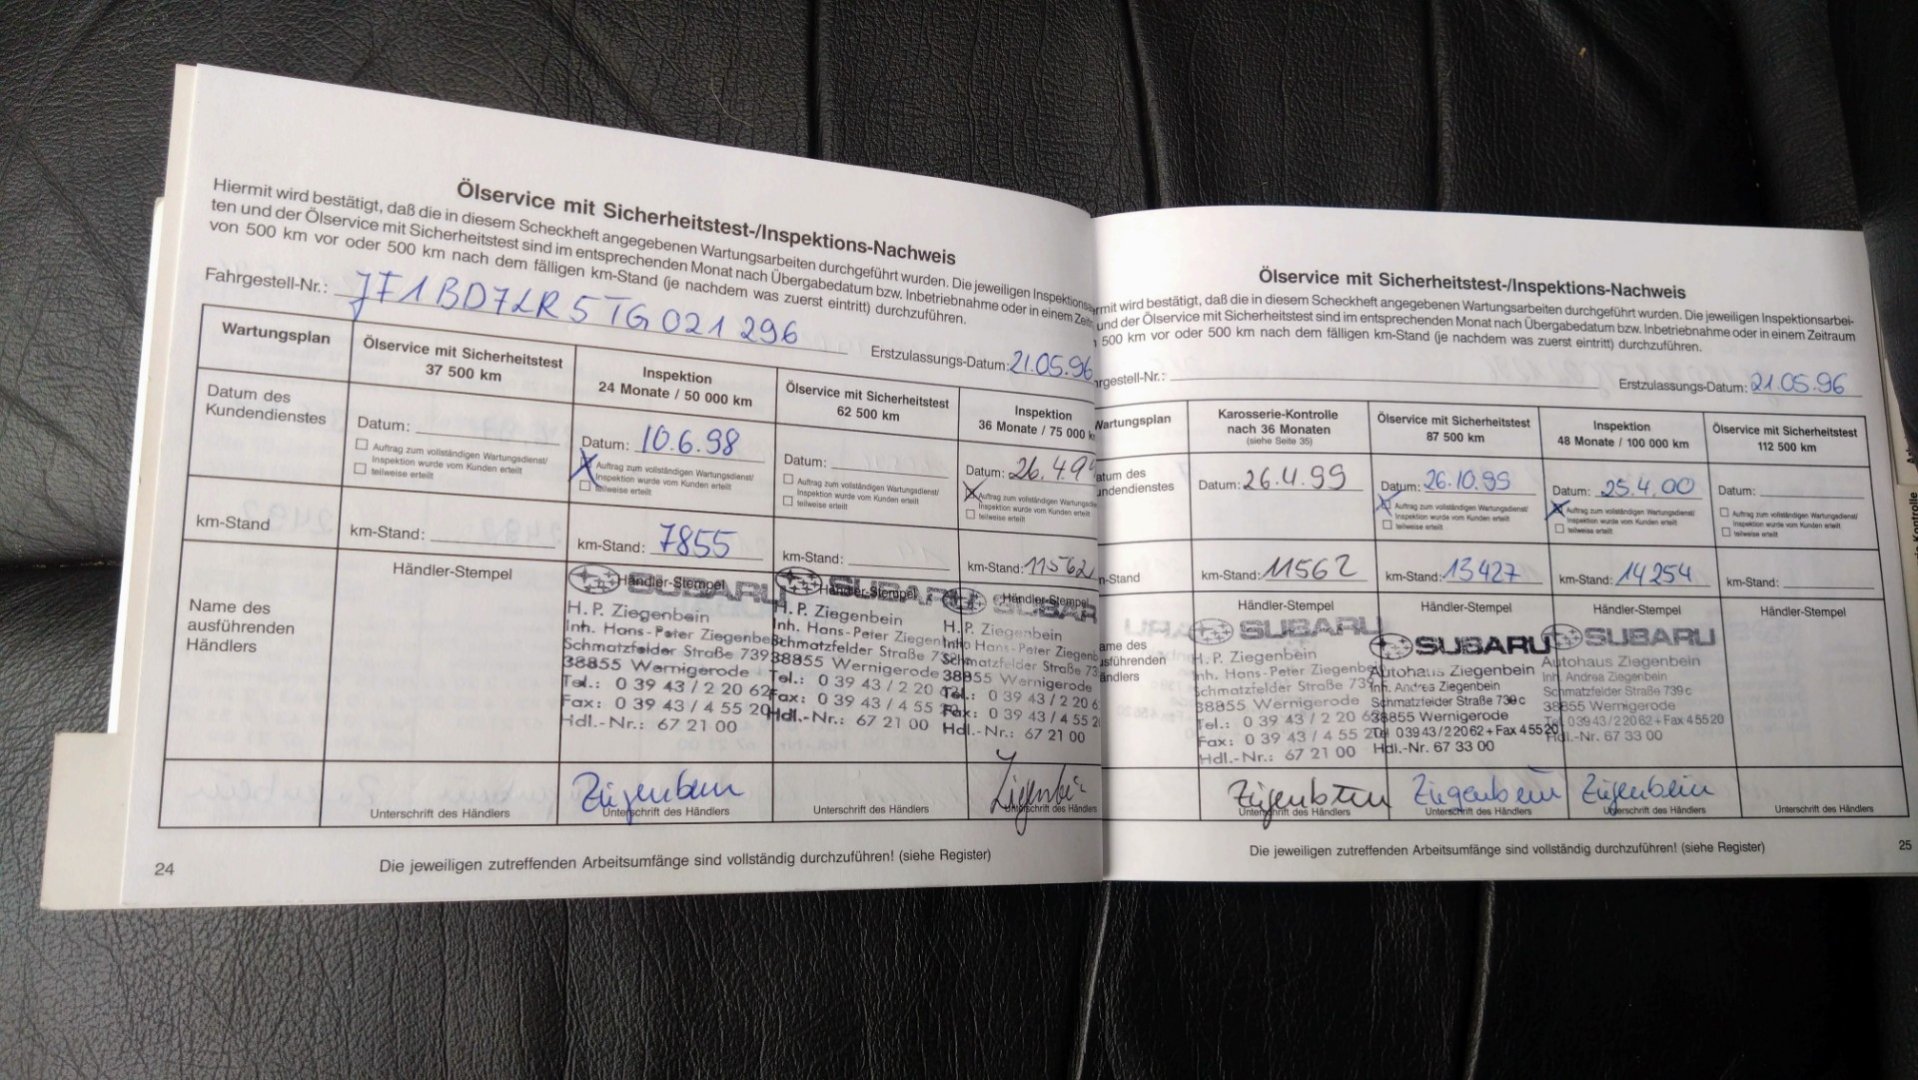 Ölservice mit Sicherheitstest-/Inspektions-Nachweis
Hiermit wird bestätigt, daß die in diesem Scheckheft angegebenen Wartungsarbeiten durchgeführt wurden. Die jeweiligen Inspektionsar
ten und der Ölservice mit Sicherheitstest sind im entsprechenden Monat nach Übergabedatum bzw. Inbetriebnahme oder in einem Zeit
von 500 km vor oder 500 km nach dem fälligen km-Stand (je nachdem was zuerst eintritt) durchzuführen.
Fahrgestell-Nr.: JF1BD7LR5TG021296 Erstzulassungs-Datum: 21.05.96
Wartungsplan
Ölservice mit Sicherheitstest
37 500 km
Inspektion
24 Monate / 50 000 km
Ölservice mit Sicherheitstest
62 500 km
Inspektion
36 Monate / 75 000 k
Datum des
Kundendienstes
Datum:
Auftrag zum vollständigen Wartungsdienst/
Inspektion wurde vom Kunden erteilt
teilweise erteilt
Datum: 10.6.98
Auftrag zum vollständigen Wartungsdienst/
Inspektion wurde vom Kunden erteilt
teilweise erteilt
Datum:
Auftrag zum vollständigen Wartungsdienst/
Inspektion wurde vom Kunden erteilt
teilweise erteilt
Datum: 26.4.9
Auftrag zum vollständigen Wartungsdie
Inspektion wurde vom Kunden erteilt
teilweise erteilt
km-Stand
km-Stand:
km-Stand: 7855
km-Stand:
km-Stand: 11562
Name des
ausführenden
Händlers
Händler-Stempel
Händler-Stempel
SUBARU
H. P. Ziegenbein
Inh. Hans-Peter Ziegenbe
Schmatzfelder Straße 739
38855 Wernigerode
Tel.: 0 39 43 / 2 20 62
Fax: 0 39 43 / 4 55 20
Hdl.-Nr.: 67 21 00
Händler-Stempel
SUBARU
H. P. Ziegenbein
Inh. Hans-Peter Ziegen
Schmatzfelder Straße 7
38855 Wernigerode
Tel.: 0 39 43 / 2 20
Fax: 0 39 43 / 4 55
Hdl.-Nr.: 67 21 00
Händler-Stempel
SUBAR
H. P. Ziegenbein
Hans-Peter Ziegenb
Schmatzfelder Straße 73
38855 Wernigerode
Tel.: 0 39 43 / 2 20 6
Fax: 0 39 43 / 4 55 2
Hdl.-Nr.: 67 21 00
Unterschrift des Händlers
Ziegenbein
Unterschrift des Händlers
Unterschrift des Händlers
Ziegenbein
Unterschrift des Händlers
24
Die jeweiligen zutreffenden Arbeitsumfänge sind vollständig durchzuführen! (siehe Register)
Ölservice mit Sicherheitstest-/Inspektions-Nachweis
ermit wird bestätigt, daß die in diesem Scheckheft angegebenen Wartungsarbeiten durchgeführt wurden. Die jeweiligen Inspektionsarbei-
und der Ölservice mit Sicherheitstest sind im entsprechenden Monat nach Übergabedatum bzw. Inbetriebnahme oder in einem Zeitraum
500 km vor oder 500 km nach dem fälligen km-Stand (je nachdem was zuerst eintritt) durchzuführen.
hrgestell-Nr.: Erstzulassungs-Datum: 21.05.96
Wartungsplan
Karosserie-Kontrolle
nach 36 Monaten
(siehe Seite 35)
Ölservice mit Sicherheitstest
87 500 km
Inspektion
48 Monate / 100 000 km
Ölservice mit Sicherheitstest
112 500 km
atum des
undendienstes
Datum: 26.4.99
Datum: 26.10.99
Auftrag zum vollständigen Wartungsdienst/
Inspektion wurde vom Kunden erteilt
teilweise erteilt
Datum: 25.4.00
Auftrag zum vollständigen Wartungsdienst/
Inspektion wurde vom Kunden erteilt
teilweise erteilt
Datum:
Auftrag zum vollständigen Wartungsdienst/
Inspektion wurde vom Kunden erteilt
teilweise erteilt
m-Stand
km-Stand: 11562
km-Stand: 13427
km-Stand: 14254
km-Stand:
ame des
usführenden
ändlers
Händler-Stempel
SUBARU
H. P. Ziegenbein
Inh. Hans-Peter Ziegenbe
Schmatzfelder Straße 739
38855 Wernigerode
Tel.: 0 39 43 / 2 20 6
Fax: 0 39 43 / 4 55 20
Hdl.-Nr.: 67 21 00
Händler-Stempel
SUBARU
Autohaus Ziegenbein
Inh. Andrea Ziegenbein
Schmatzfelder Straße 739 c
38855 Wernigerode
Tel 0 39 43 / 2 20 62 + Fax 4 55 20
Hdl.-Nr. 67 33 00
Händler-Stempel
SUBARU
Autohaus Ziegenbein
Inh. Andrea Ziegenbein
Schmatzfelder Straße 739 c
38855 Wernigerode
Tel 0 39 43 / 2 20 62 + Fax 4 55 20
Hdl.-Nr. 67 33 00
Händler-Stempel
Ziegenbein
Unterschrift des Händlers
Ziegenbein
Unterschrift des Händlers
Ziegenbein
Unterschrift des Händlers
Unterschrift des Händlers
Die jeweiligen zutreffenden Arbeitsumfänge sind vollständig durchzuführen! (siehe Register)
25